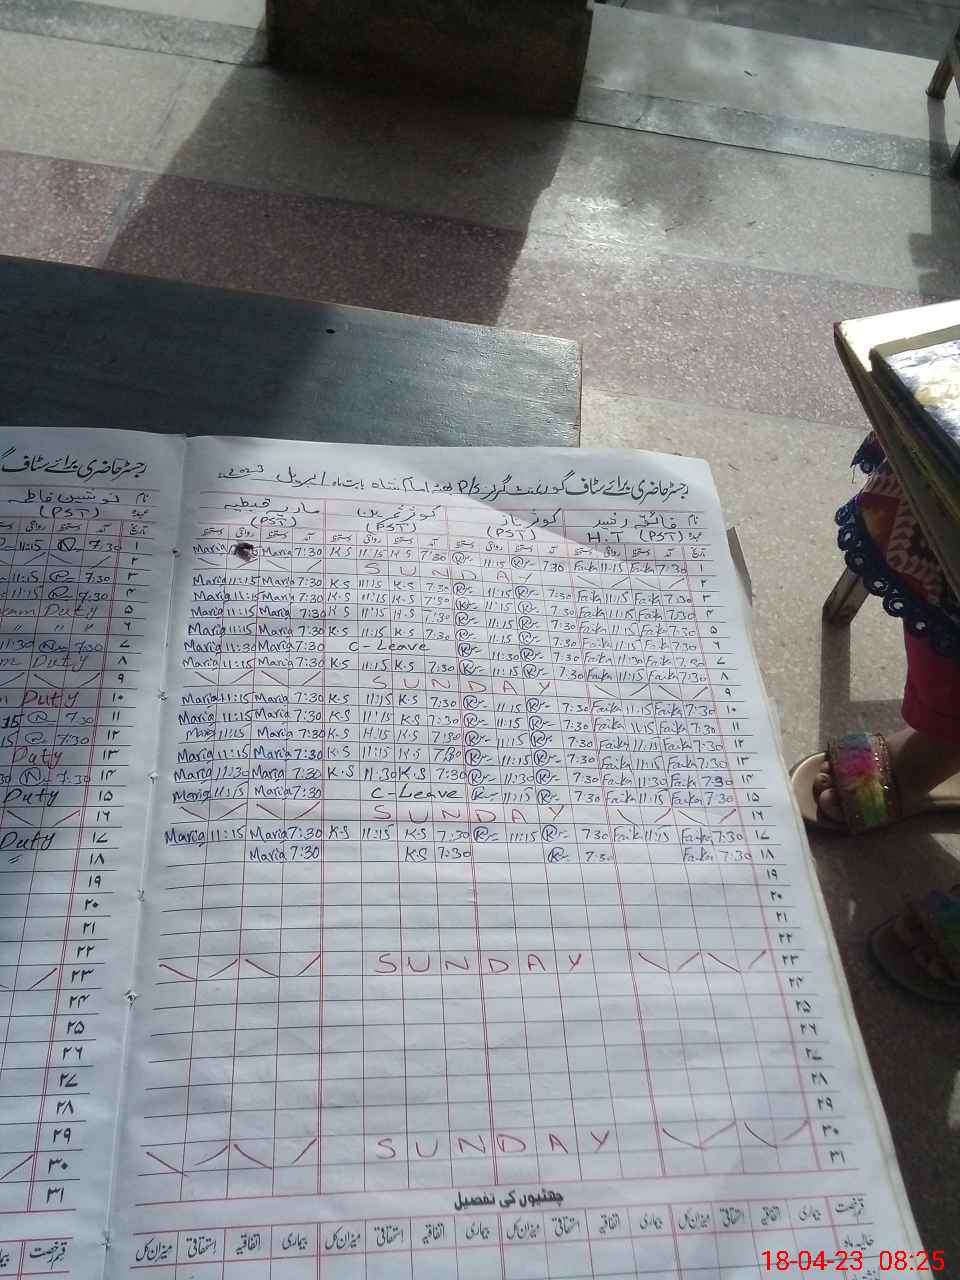 رجسٹر حاضری برائے سٹاف گورنمنٹ گرلز P/S بابت ماہ اپریل 2023
رجسٹر حاضری برائے سٹاف گ
نام فائقہ رشید کوثر ناز کوثر نسرین ماریہ قبطیہ
عہدہ (PST) H.T (PST) (PST) (PST)
نام نوشین فاطمہ
عہدہ (PST)
تاریخ آمد دستخط روانگی دستخط آمد دستخط روانگی دستخط آمد دستخط روانگی دستخط آمد دستخط روانگی دستخط
Maria Maria 7:30 K.S 11:15 K.S 7:30 11:15 7:30 Faika 11:15 Faika 7:30 ۱
SUNDAY ۲
Maria 11:15 Maria 7:30 K.S 11:15 K.S 7:30 11:15 7:30 Faika 11:15 Faika 7:30 ۳
Maria 11:15 Maria 7:30 K.S 11:15 K.S 7:30 11:15 7:30 Faika 11:15 Faika 7:30 ۴
Maria 11:15 Maria 7:30 K.S 11:15 K.S 7:30 11:15 7:30 Faika 11:15 Faika 7:30 ۵
Maria 11:15 Maria 7:30 K.S 11:15 K.S 7:30 11:15 7:30 Faika 11:15 Faika 7:30 ۶
Maria 11:30 Maria 7:30 C-Leave 11:30 7:30 Faika 11:30 Faika 7:30 ۷
Maria 11:15 Maria 7:30 K.S 11:15 K.S 7:30 11:15 7:30 Faika 11:15 Faika 7:30 ۸
SUNDAY ۹
Maria 11:15 Maria 7:30 K.S 11:15 K.S 7:30 11:15 7:30 Faika 11:15 Faika 7:30 ۱۰
Maria 11:15 Maria 7:30 K.S 11:15 K.S 7:30 11:15 7:30 Faika 11:15 Faika 7:30 ۱۱
Maria 11:15 Maria 7:30 K.S 11:15 K.S 7:30 11:15 7:30 Faika 11:15 Faika 7:30 ۱۲
Maria 11:15 Maria 7:30 K.S 11:15 K.S 7:30 11:15 7:30 Faika 11:15 Faika 7:30 ۱۳
Maria 11:30 Maria 7:30 K.S 11:30 K.S 7:30 11:30 7:30 Faika 11:30 Faika 7:30 ۱۴
Maria 11:15 Maria 7:30 C-Leave 11:15 7:30 Faika 11:15 Faika 7:30 ۱۵
SUNDAY ۱۶
Maria 11:15 Maria 7:30 K.S 11:15 K.S 7:30 11:15 7:30 Faika 11:15 Faika 7:30 ۱۷
Maria 7:30 K.S 7:30 7:30 Faika 7:30 ۱۸
۱۹
۲۰
۲۱
۲۲
SUNDAY ۲۳
۲۴
۲۵
۲۶
۲۷
۲۸
۲۹
SUNDAY ۳۰
۳۱
11:15 7:30 ۱
۲
11:15 7:30 ۳
11:15 7:30 ۴
Duty ۵
" " " ۶
11:30 7:30 ۷
Duty ۸
۹
Duty ۱۰
15 7:30 ۱۱
15 7:30 ۱۲
Duty ۱۳
30 7:30 ۱۴
Duty ۱۵
۱۶
Duty ۱۷
" ۱۸
۱۹
۲۰
۲۱
۲۲
۲۳
۲۴
۲۵
۲۶
۲۷
۲۸
۲۹
۳۰
۳۱
چھٹیوں کی تفصیل
قسم رخصت بیماری اتفاقیہ استحقاقی میزان کل بیماری اتفاقیہ استحقاقی میزان کل بیماری اتفاقیہ استحقاقی میزان کل
حالیہ ماہ
قسم رخصت
18-04-23 08:25